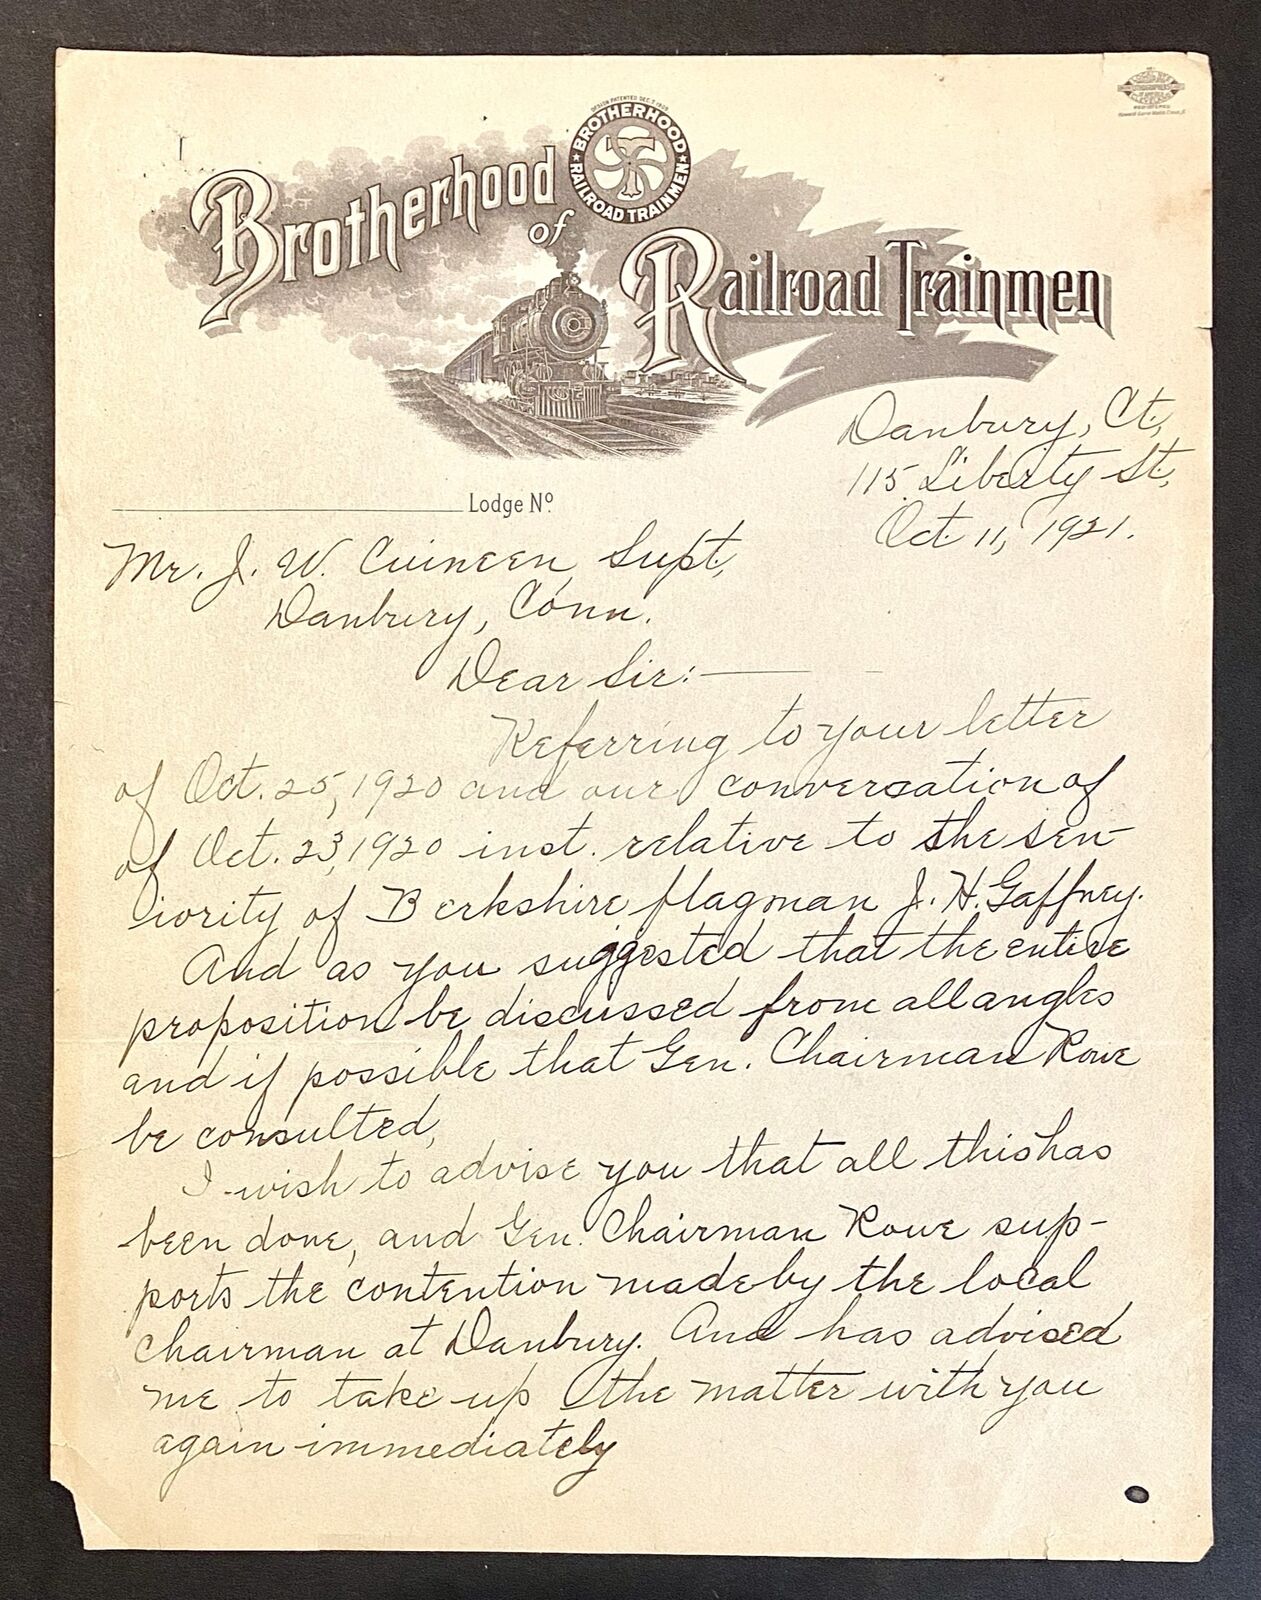 DESIGN PATENTED DEC. 7, 1909
BROTHERHOOD
RAILROAD TRAINMEN
Brotherhood
of
Railroad Trainmen
Danbury, Ct,
115 Liberty St,
Oct. 11, 1921.
Lodge Nº
Mr. J. W. Cuineen Supt,
Danbury, Conn.
Dear Sir:—
Referring to your letter
of Oct. 25, 1920 and our conversation of
of Oct. 23, 1920 inst. relative to the sen-
iority of Berkshire flagman J. H. Gaffney.
And as you suggested that the entire
proposition be discussed from all angles
and if possible that Gen. Chairman Rowe
be consulted,
I wish to advise you that all this has
been done, and Gen. Chairman Rowe sup-
ports the contention made by the local
chairman at Danbury. And has advised
me to take up the matter with you
again immediately